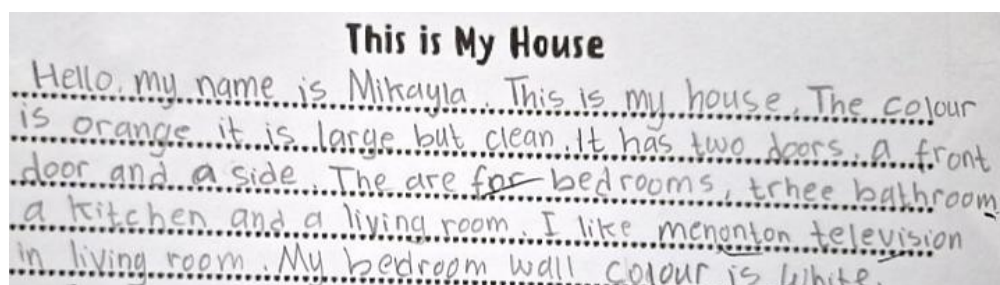 This is My House
Hello, my name is Mikayla. This is my house. The colour
is orange it is large but clean. It has two doors, a front
door and a side. The are for bedrooms, trhee bathroom
a kitchen and a living room. I like menonton television
in living room. My bedroom wall colour is white.